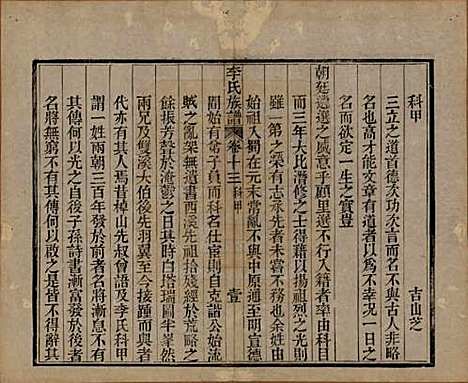 科甲
古山芝
三立之道首德次功次言而名不與古人非略
名也高才能文章有道者以為不幸况一日之
名而欲定一生之實豈
朝廷遴選之盛意乎顧里選不行人才率由科目
而三年大比潛修之士得藉以揚祖烈之光則
雖一第之榮有志承先者未嘗不務也余長
始祖入蜀在元末當亂不與中原通至明宣德
開始有弟子員而科名仕宦則自克譜公始流
賊之亂架無遺書西溪先祖拾殘經於荒略之
餘振芳聲於淹鬱之日而後白塔瑞圖半峯然
兩兄及雙溪大伯後先羽翼至今接踵而起者
代亦有人焉昔棹山先叔曾語及李氏科甲
謂一姓兩朝三百年發於前者名將漸息不有
其傳何以誌之自後子孫詩書漸富發於後者
名將無窮不有其傳何以啟之是皆不得辭其
李氏族譜
卷十三
科甲
壹